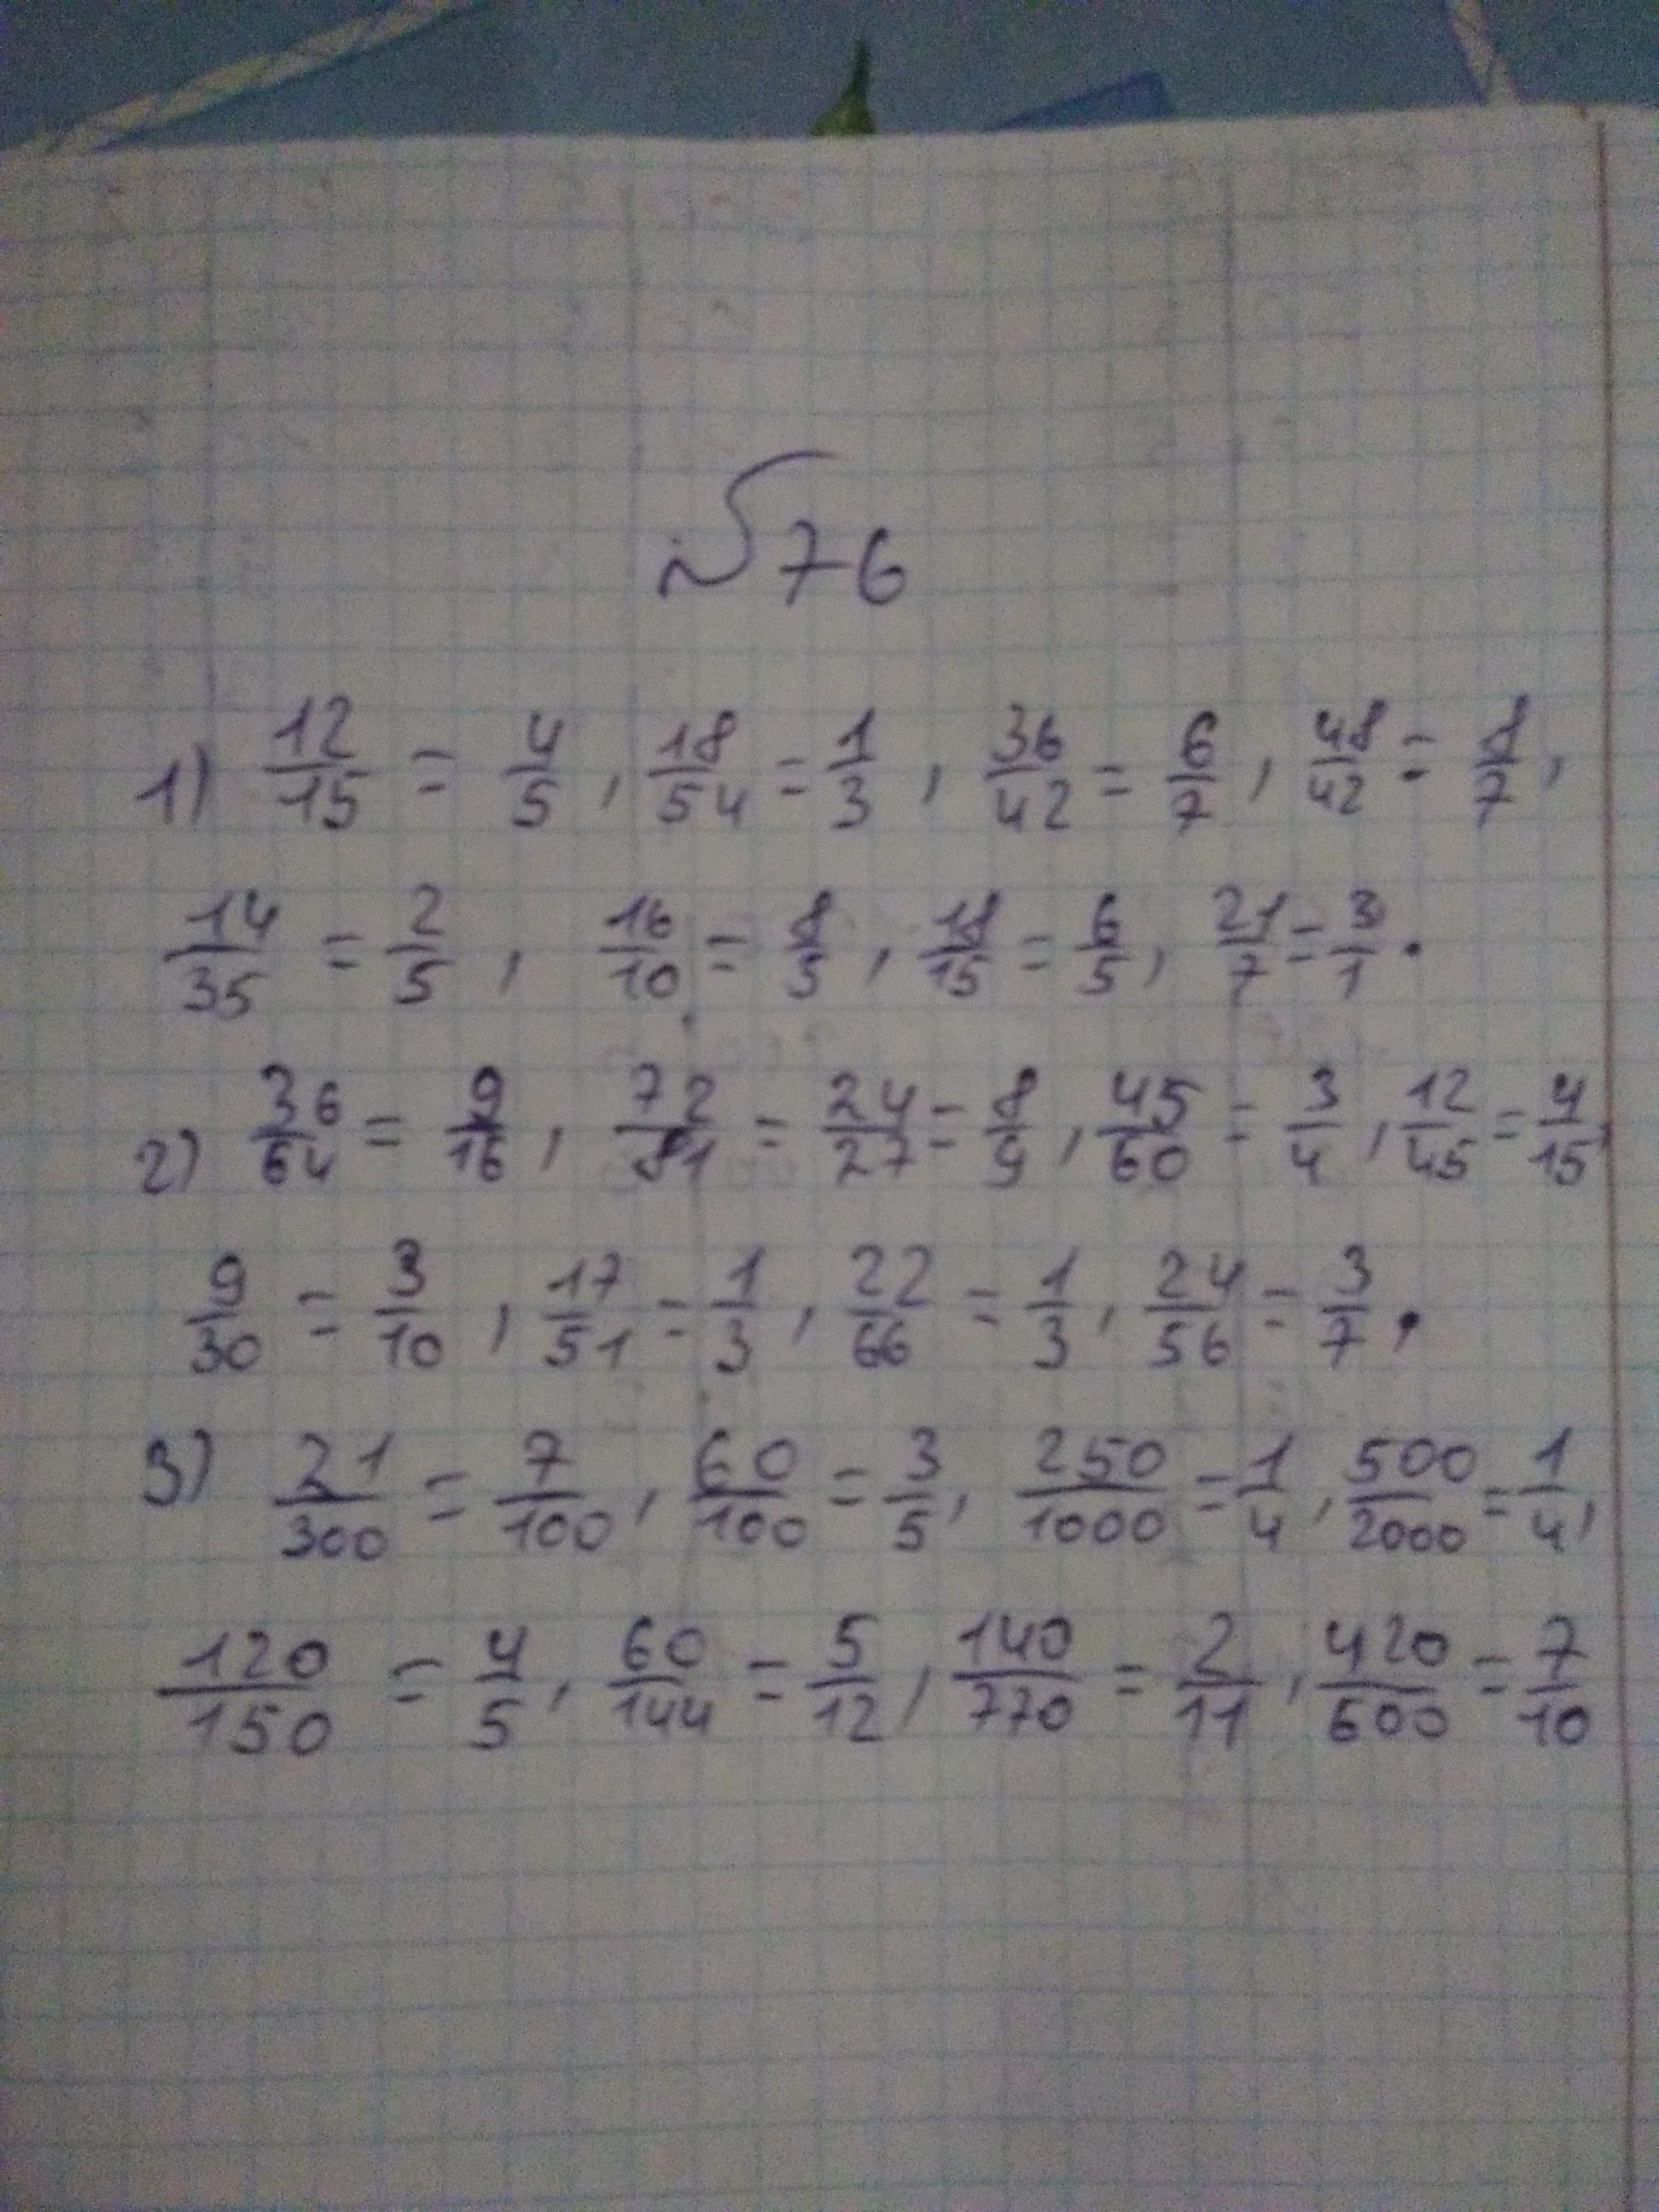 №76
1) 12/15 = 4/5, 18/54 = 1/3, 36/42 = 6/7, 48/42 = 8/7,
14/35 = 2/5, 16/10 = 8/5, 18/15 = 6/5, 21/7 = 3/1.
2) 36/64 = 9/16, 72/81 = 24/27 = 8/9, 45/60 = 3/4, 12/45 = 4/15,
9/30 = 3/10, 17/51 = 1/3, 22/66 = 1/3, 24/56 = 3/7.
3) 21/300 = 7/100, 60/100 = 3/5, 250/1000 = 1/4, 500/2000 = 1/4,
120/150 = 4/5, 60/144 = 5/12, 140/770 = 2/11, 420/600 = 7/10